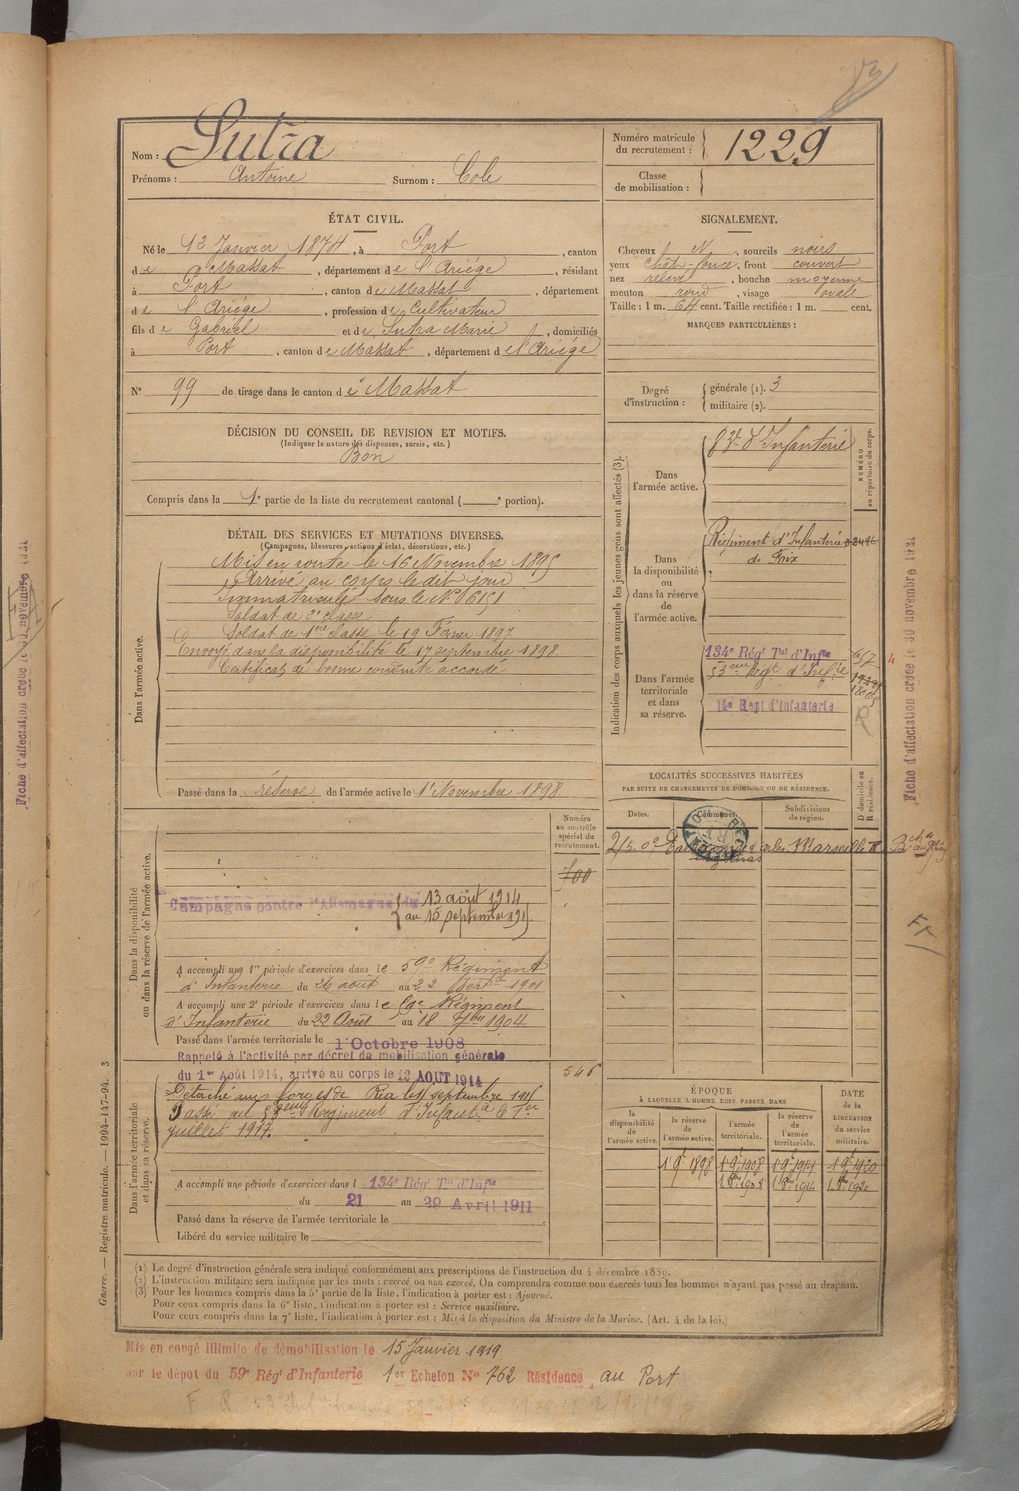 Nom : Sutra
Prénoms : Antoine Surnom : Cole
Numéro matricule du recrutement : 1229
Classe de mobilisation :
ÉTAT CIVIL.
Né le 12 Janvier 1874, à Port, canton
de Massat, département de l'Ariége, résidant
à Port, canton de Massat, département
de l'Ariége, profession de Cultivateur
fils de Gabriel et de Sutra Marie, domiciliés
à Port, canton de Massat, département de l'Ariége
N° 99 de tirage dans le canton de Massat
SIGNALEMENT.
Cheveux N, sourcils noirs
yeux chât. foncé, front couvert
nez relevé, bouche moyenne
menton rond, visage ovale
Taille : 1 m. 64 cent. Taille rectifiée : 1 m. cent.
MARQUES PARTICULIÈRES :
Degré d'instruction :
générale (1). 3
militaire (2).
DÉCISION DU CONSEIL DE REVISION ET MOTIFS.
(Indiquer la nature des dispenses, sursis, etc.)
Bon
Compris dans la 1e partie de la liste du recrutement cantonal ( e portion).
DÉTAIL DES SERVICES ET MUTATIONS DIVERSES.
(Campagnes, blessures, actions d'éclat, décorations, etc.)
Dans l'armée active.
Mis en route le 16 Novembre 1895
Arrivé au corps le dit jour
Immatriculé sous le N° 6151
Soldat de 2e classe
Soldat de 1ère classe le 19 Février 1897
Envoyé dans la disponibilité le 17 septembre 1898
Certificat de bonne conduite accordé
Passé dans la réserve de l'armée active le 1er Novembre 1898
Indication des corps auxquels les jeunes gens sont affectés (3).
NUMÉRO au répertoire du corps.
Dans l'armée active.
83e d'Infanterie
Dans la disponibilité ou dans la réserve de l'armée active.
Régiment d'Infanterie
de Foix
Dans l'armée territoriale et dans sa réserve.
134e Régt Tal d'Infie
53ème Régt d'Infie
14e Regt d'Infanterie
R
LOCALITÉS SUCCESSIVES HABITÉES
PAR SUITE DE CHANGEMENTS DE DOMICILE OU DE RÉSIDENCE.
Dates. Communes. Subdivisions de région. D domicile ou R résidence.
Marseille R
Dans la disponibilité ou dans la réserve de l'armée active.
Numéro au contrôle spécial du recrutement.
700
Campagne contre l'Allemagne du 13 août 1914
au 15 septembre 1915
A accompli une 1re période d'exercices dans le 59e Régiment
d'Infanterie du 26 août au 22 septbre 1901
A accompli une 2e période d'exercices dans le 59e Régiment
d'Infanterie du 22 Août au 18 7bre 1904
Passé dans l'armée territoriale le 1er Octobre 1908
Rappelé à l'activité par décret de mobilisation générale
du 1er Août 1914, arrivé au corps le 13 AOUT 1914
546
Dans l'armée territoriale et dans sa réserve.
Passé au 53ème Régiment d'Infanterie le 1er
juillet 1917.
A accompli une période d'exercices dans l 134e Régt Tal d'Infie
du 21 au 29 Avril 1911
Passé dans la réserve de l'armée territoriale le
Libéré du service militaire le
ÉPOQUE
À LAQUELLE L'HOMME DOIT PASSER DANS
la disponibilité de l'armée active. la réserve de l'armée active. l'armée territoriale. la réserve de l'armée territoriale.
DATE de la LIBÉRATION du service militaire.
1er 9bre 1898 1er 9bre 1908 1er 9bre 1914 1er 9bre 1920
1er 8bre 1908 1er 8bre 1914 1er 8bre 1920
(1) Le degré d'instruction générale sera indiqué conformément aux prescriptions de l'instruction du 4 décembre 1889.
(2) L'instruction militaire sera indiquée par les mots : exercé ou non exercé. On comprendra comme non exercés tous les hommes n'ayant pas passé au drapeau.
(3) Pour les hommes compris dans la 5e partie de la liste, l'indication à porter est : Ajourné.
Pour ceux compris dans la 6e liste, l'indication à porter est : Service auxiliaire.
Pour ceux compris dans la 7e liste, l'indication à porter est : Mis à la disposition du Ministre de la Marine. (Art. 4 de la loi.)
Mis en congé illimité de démobilisation le 15 Janvier 1919
par le dépot du 59e Régt d'Infanterie 1er Echelon No 762 Résidence au Port
Guerre. — Registre matricule. — 1994-147-94. 3
Fiche d'affectation créée le 30 novembre 1921
Fiche d'affectation créée le 30 novembre 1921